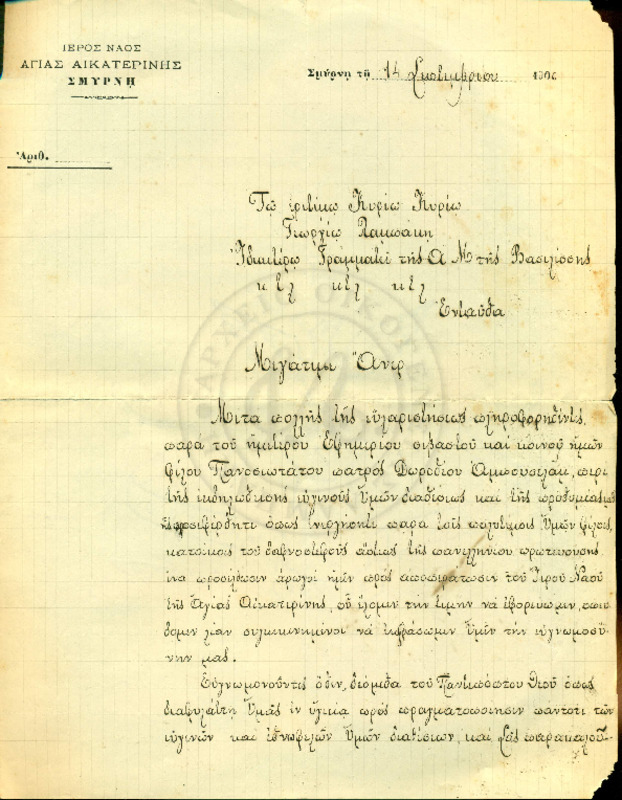 ΙΕΡΟΣ ΝΑΟΣ
ΑΓΙΑΣ ΑΙΚΑΤΕΡΙΝΗΣ
ΣΜΥΡΝΗ
Σμύρνῃ τῇ 14 Σεπτεμβρίου 190
Ἀριθ.
Τῷ ἐριτίμῳ Κυρίῳ Κυρίῳ
Γεωργίῳ Λαμπάκῃ
Ἰδιαιτέρῳ Γραμματεῖ τῆς Α Μ τῆς Βασιλίσσης
κτλ κτλ κτλ
Ἐνταῦθα
Μεγάτιμε Ἄνερ
Μετὰ πολλῆς τῆς εὐχαριστήσεως πληροφορηθέντες
παρὰ τοῦ ἡμετέρου Ἐφημερίου σεβαστοῦ καὶ κοινοῦ ἡμῶν
φίλου Πανοσιωτάτου πατρὸς Δωροθέου περὶ
τῆς ἐκδηλωθείσης εὐγενοῦς Ὑμῶν διαθέσεως καὶ τῆς προθυμίας
ὅπως ἐνεργήσητε παρὰ τοῖς πολυτίμοις Ὑμῶν φίλοις,
κατοίκοις τοῦ δαφνοστεφοῦς ἄστεως τῆς πανελληνίου πρωτευούσης
ἵνα προσέλθωσιν ἀρωγοὶ ἡμῖν πρὸς ἀποπεράτωσιν τοῦ Ἱεροῦ Ναοῦ
τῆς Ἁγίας Αἰκατερίνης, οὗ ἔχομεν τὴν τιμὴν νὰ ἐφορεύωμεν,
λίαν συγκεκινημένοι νὰ ἐκφράσωμεν Ὑμῖν τὴν εὐγνωμοσύ-
νην μας.
Εὐγνωμονοῦντες ὅθεν, δεόμεθα τοῦ Πανεπόπτου Θεοῦ ὅπως
διαφυλάττῃ Ὑμᾶς ἐν ὑγιείᾳ πρὸς πραγματοποίησιν πάντοτε τῶν
εὐγενῶν καὶ ἐθνωφελῶν Ὑμῶν διαθέσεων, καὶ Σᾶς παρακαλοῦ-